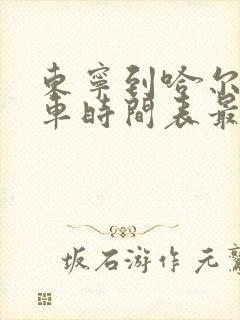 東寧到哈尔
車時間表最
坂石游作元